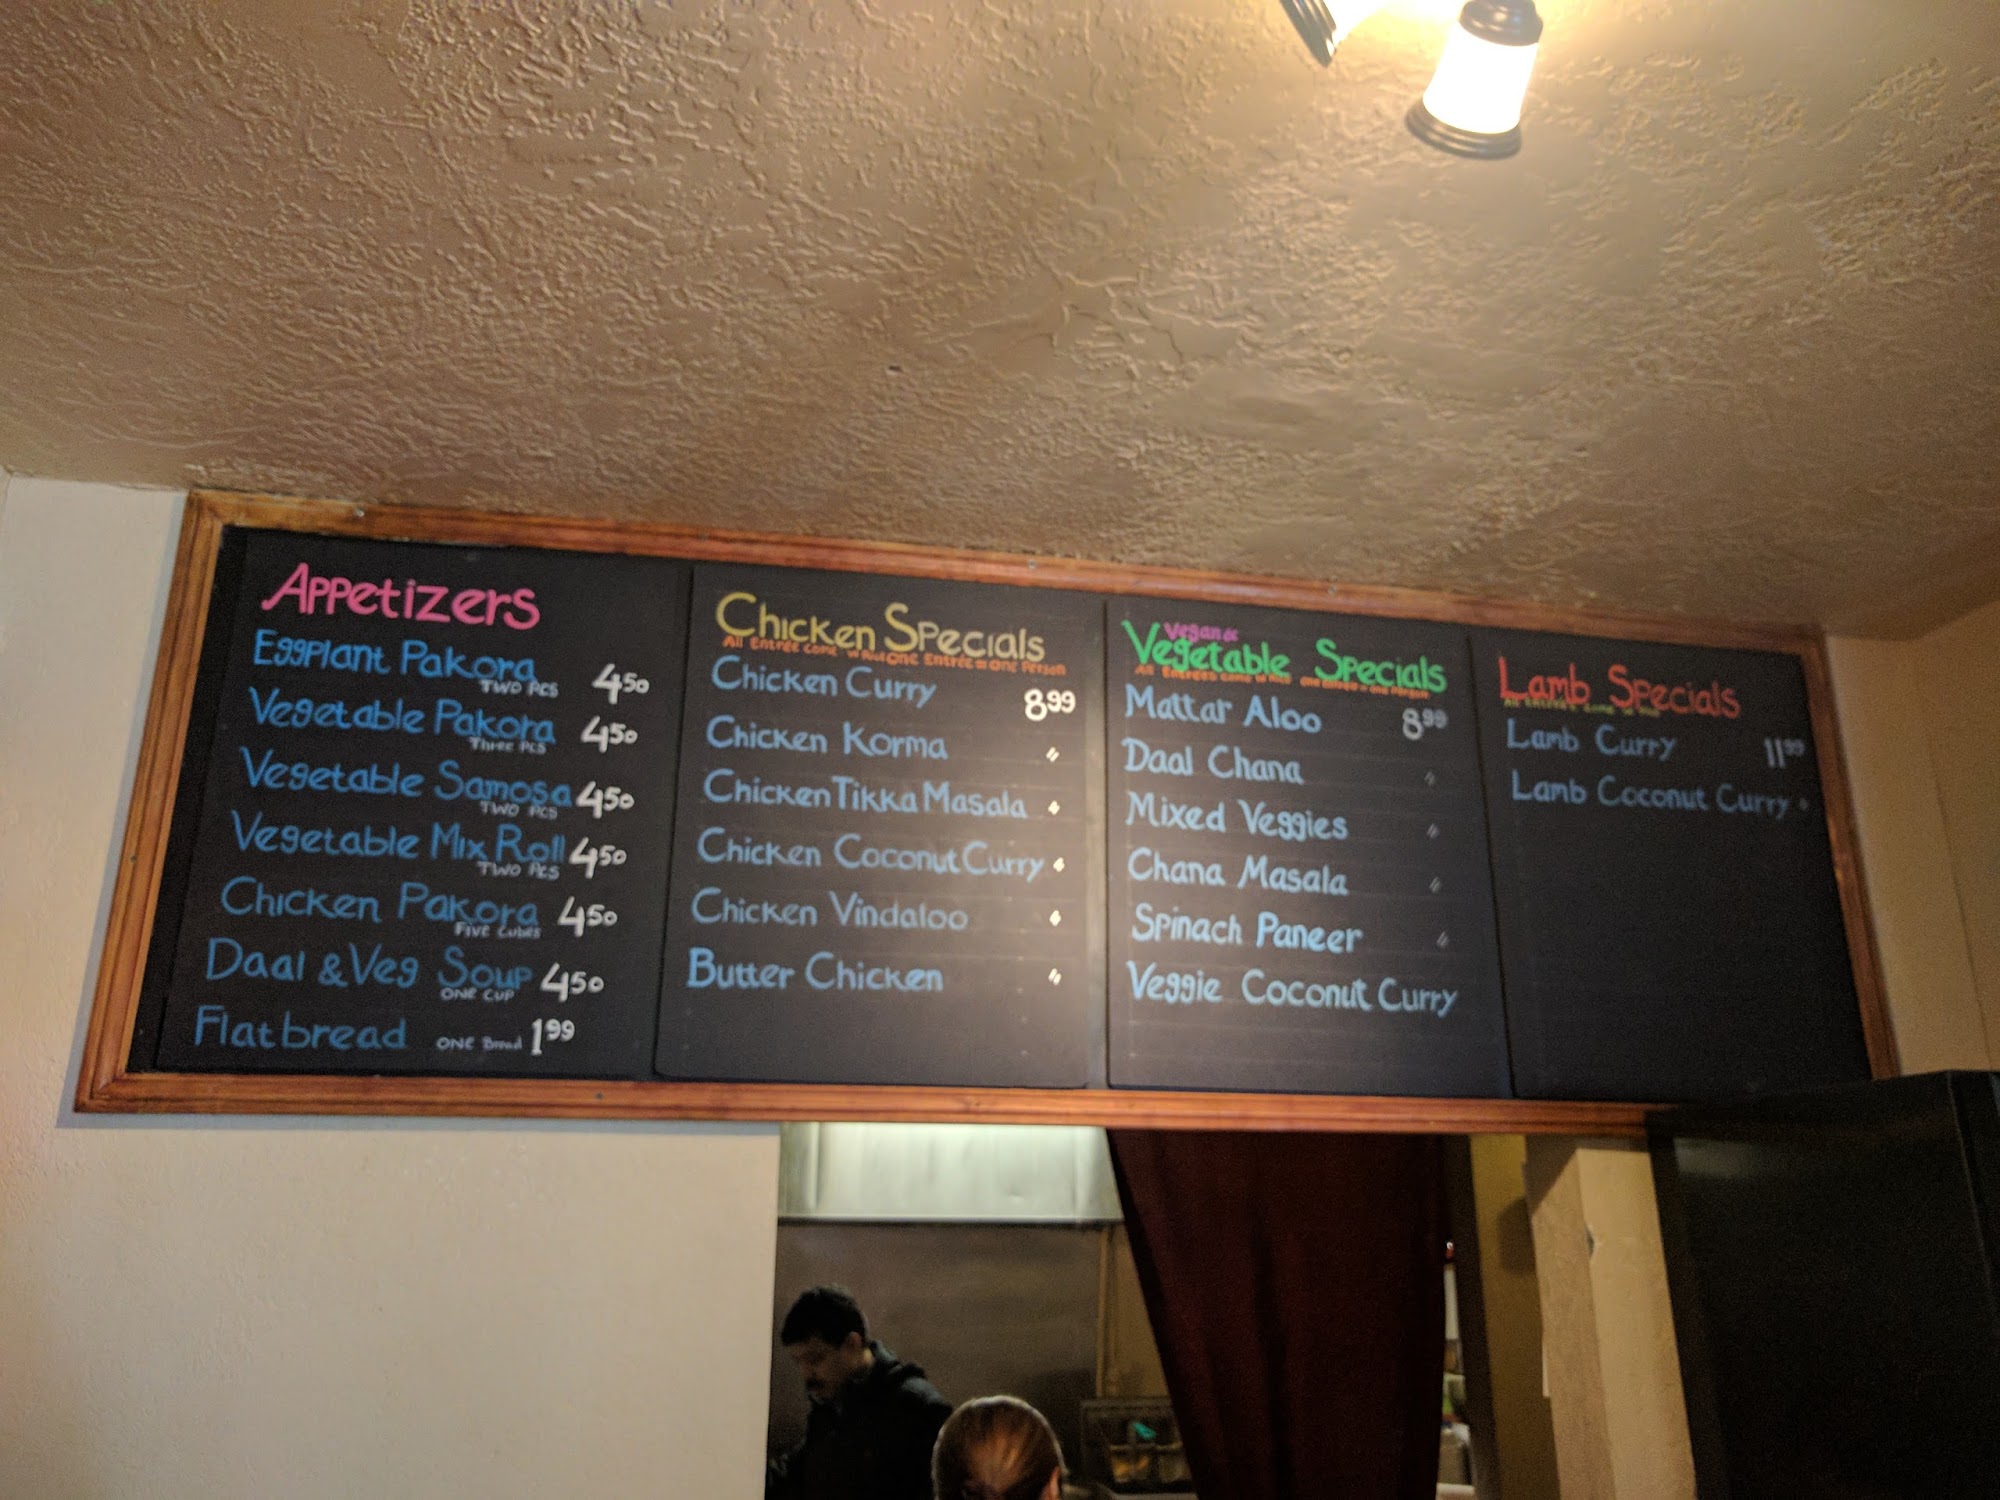 Appetizers
Eggplant Pakora 4.50
Two Pcs
Vegetable Pakora 4.50
Three Pcs
Vegetable Samosa 4.50
Two Pcs
Vegetable Mix Roll 4.50
Two Pcs
Chicken Pakora 4.50
Five Cubes
Daal & Veg Soup 4.50
One Cup
Flatbread One Bread 1.99
Chicken Specials
All Entrée come w Rice One Entrée = One Person
Chicken Curry 8.99
Chicken Korma "
Chicken Tikka Masala "
Chicken Coconut Curry "
Chicken Vindaloo "
Butter Chicken "
Vegan &
Vegetable Specials
All Entrées come w Rice One Entrée = One Person
Mattar Aloo 8.99
Daal Chana "
Mixed Veggies "
Chana Masala "
Spinach Paneer "
Veggie Coconut Curry
Lamb Specials
All Entrées come w Rice
Lamb Curry 11.99
Lamb Coconut Curry "